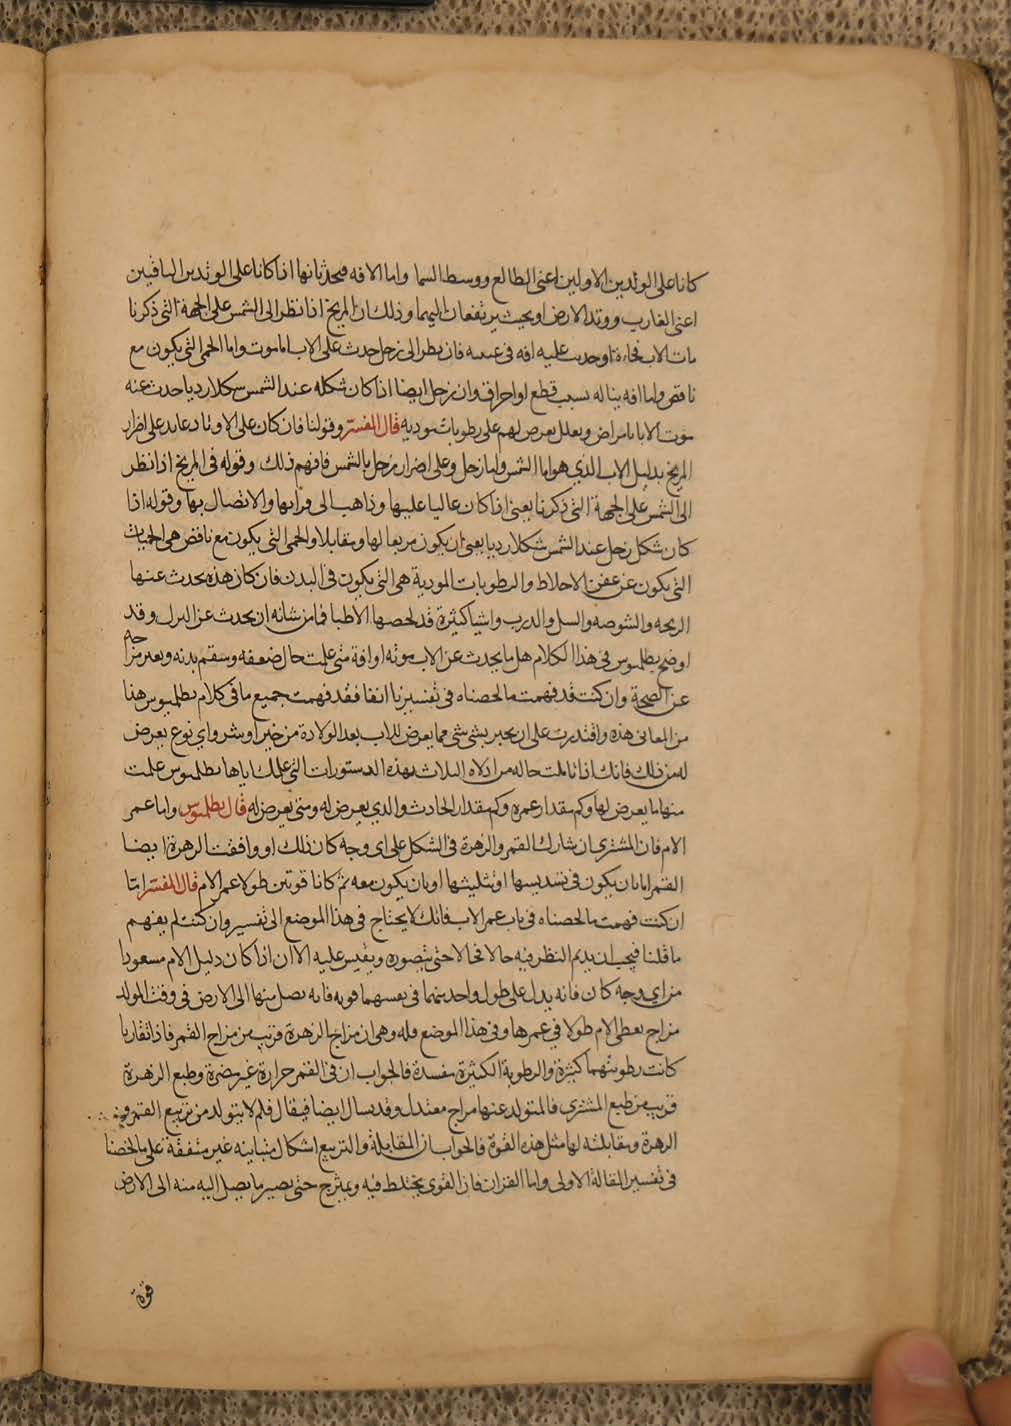 كانا على الوتدين الاولين اعنى الطالع ووسط السما واما الافه فيحدثانها اذا كانا على الوتدين الباقيين
اعنى الغارب ووتد الارض او بحيث يرتفعان اليهما وذلك ان المريخ اذا نظر الى الشمس على الجهة التى ذكرنا
مات الاب فجاءة او حدث عليه افه فى عينيه فان نظر الى زحل حدث على الاب اما موت واما الحمى التى يكون مع
نافض واما افه يناله بسبب قطع او احراق وان زحل ايضا اذا كان شكله عند الشمس شكلا رديا حدث عنه
موت الابا بامراض وبعلل يعرض لهم على رطوبات موديه قال المفسر وقولنا فان كان على الاوتاد عايد على اضرار
المريخ بدليل الاب الذي هو اما الشمس واما زحل وعلى اضرار زحل بالشمس فافهم ذلك وقوله فى المريخ اذا نظر
الى الشمس على الجهة التى ذكرنا يعنى اذا كان عاليا عليها وذاهبا الى قرانها والاتصال بها وقوله اذا
كان شكل زحل عند الشمس شكلا رديا يعنى ان يكون مربعا لها ومقابلا والحمى التى يكون مع نافض هى الحميات
التى يكون عن عفن الاخلاط والرطوبات المودية هى التى يكون فى البدن فان كان هذه يحدث عنها
الريحه والشوصه والسل والدرب واشيا كثيرة قد لخصها الاطبا فما من شانه ان يحدث عن النزل وقد
اوضح بطلميوس فى هذا الكلام هل ما يحدث عن الاب موته او افة متى علمت حال ضعفه وسقم بدنه وبعد مزاجه
عن الصحة وان كنت قد فهمت ما لخصناه فى تفسيرنا انفا فقد فهمت جميع ما فى كلام بطلميوس هنا
من المعانى هذه واقتدرت على ان يخبر بشى شى مما يعرض للاب بعد الولادة من خير او شر واي نوع يعرض
له من ذلك فانك اذا تاملت حاله من ادلاه الثلاث بهذه الدستورات التى علمك اياها بطلميوس علمت
منها ما يعرض لها وكم مقدار عمره وكم مقدار الحادث والذي يعرض له ومتى يعرض له قال بطلميوس واما عمر
الام فان المشترى ان شارك القمر والزهرة فى الشكل على اى وجه كان ذلك او وافقت الزهرة ايضا
القمر اما بان يكون فى تسديسها او تثليثها او بان يكون معه ثم كانا قوتين طولا عمر الام قال المفسر اما
ان كنت فهمت ما لخصناه فى باب عمر الاب فانك لا يحتاج فى هذا الموضع الى تفسير وان كنت لم يفهم
ما قلنا فيجب ان يديم النظر فيه حالا فحالا حتى يتصوره ويقيس عليه الا ان اذا كان دليل الام مسعودا
من اي وجه كان فانه يدل على طول واحد منهما فى نفسهما قويه فانه يصل منها الى الارض فى وقت المولد
مزاج يعطى الام طولا في عمرها وفى هذا الموضع وهى ان مزاج الزهرة قريب من مزاج القمر فاذا تقاربا
كانت رطوبتهما كثيرة والرطوبة الكثيرة مفسدة فالجواب ان فى القمر حرارة غير مضرة وطبع الزهرة
قريب من طبع المشتري فالمتولد عنها مزاج معتدل وقد يسال ايضا فيقال فلم لا يتولد من تربيع القمر
الزهرة ومقابلته لها مثل هذه القوة فالجواب ان المقابلة والتربيع اشكال متباينه غير متفقة على ما لخصنا
فى تفسير المقالة الاولى واما القران فان القوى يختلط فيه ويمتزج حتى يصير ما يصل اليه منه الى الارض
قوة